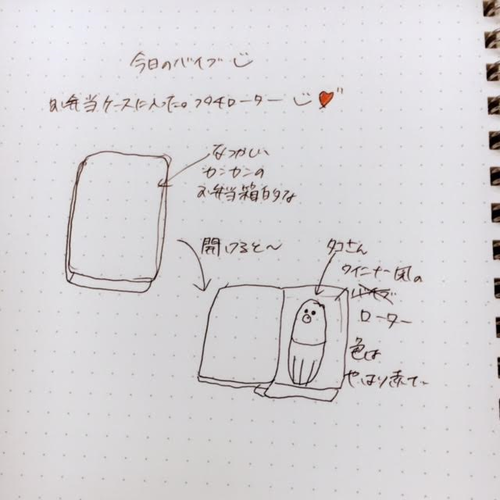 今日のバイブ
お弁当ケースに入った。ローター
なつかしい
カンカンの
お弁当箱的な
開けると〜
タコさん
ウインナー風の
ローター
色は
やはり赤で。